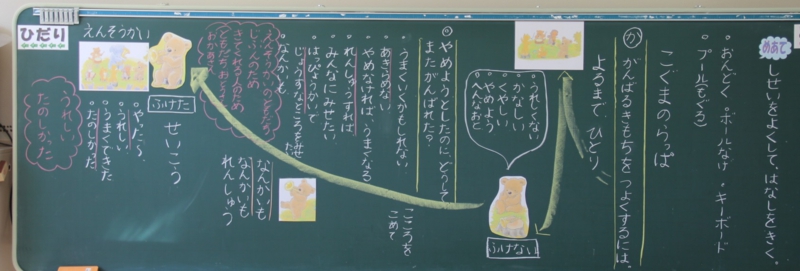 めあて しせいをよくして、はなしをきく。
・おんどく ・ボールなげ ・キーボード
・プール(もぐる)
こぐまのらっぱ
か がんばるきもちを つよくするには
よるまで、ひとり
・うれしくない
・かなしい
・くやしい
・やめよう
・へんなおと
ふけない
◎やめようとしたのに、どうして
またがんばれた?
・うまくいくかもしれない
・あきらめない
・やめなければ、うまくなる
・れんしゅうすれば
・みんなにみせたい
・はっぴょうかいで
じょうずなところをみせ
・なんかいも
こころを
こめて
なんかいも
なんかいも
れんしゅう
えんそうかいのどりょく
じぶんのため
きてくれる人のため
ともだち
おかあさん
ふけた
せいこう
・やった〜
・うれしい
・うまくできた
・たのしかった
えんそうかい
うれしい
たのしかった
ひだり